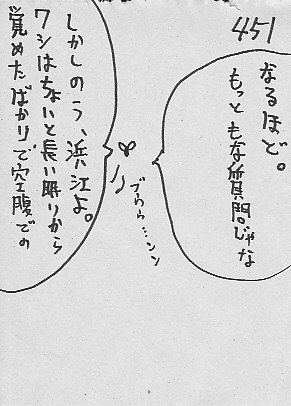 451
なるほど。
もっともな質問じゃな
ブゥゥ…ンン
しかしのう、浜江よ。
ワシはちょいと長い眠りから
覚めたばかりで空腹での